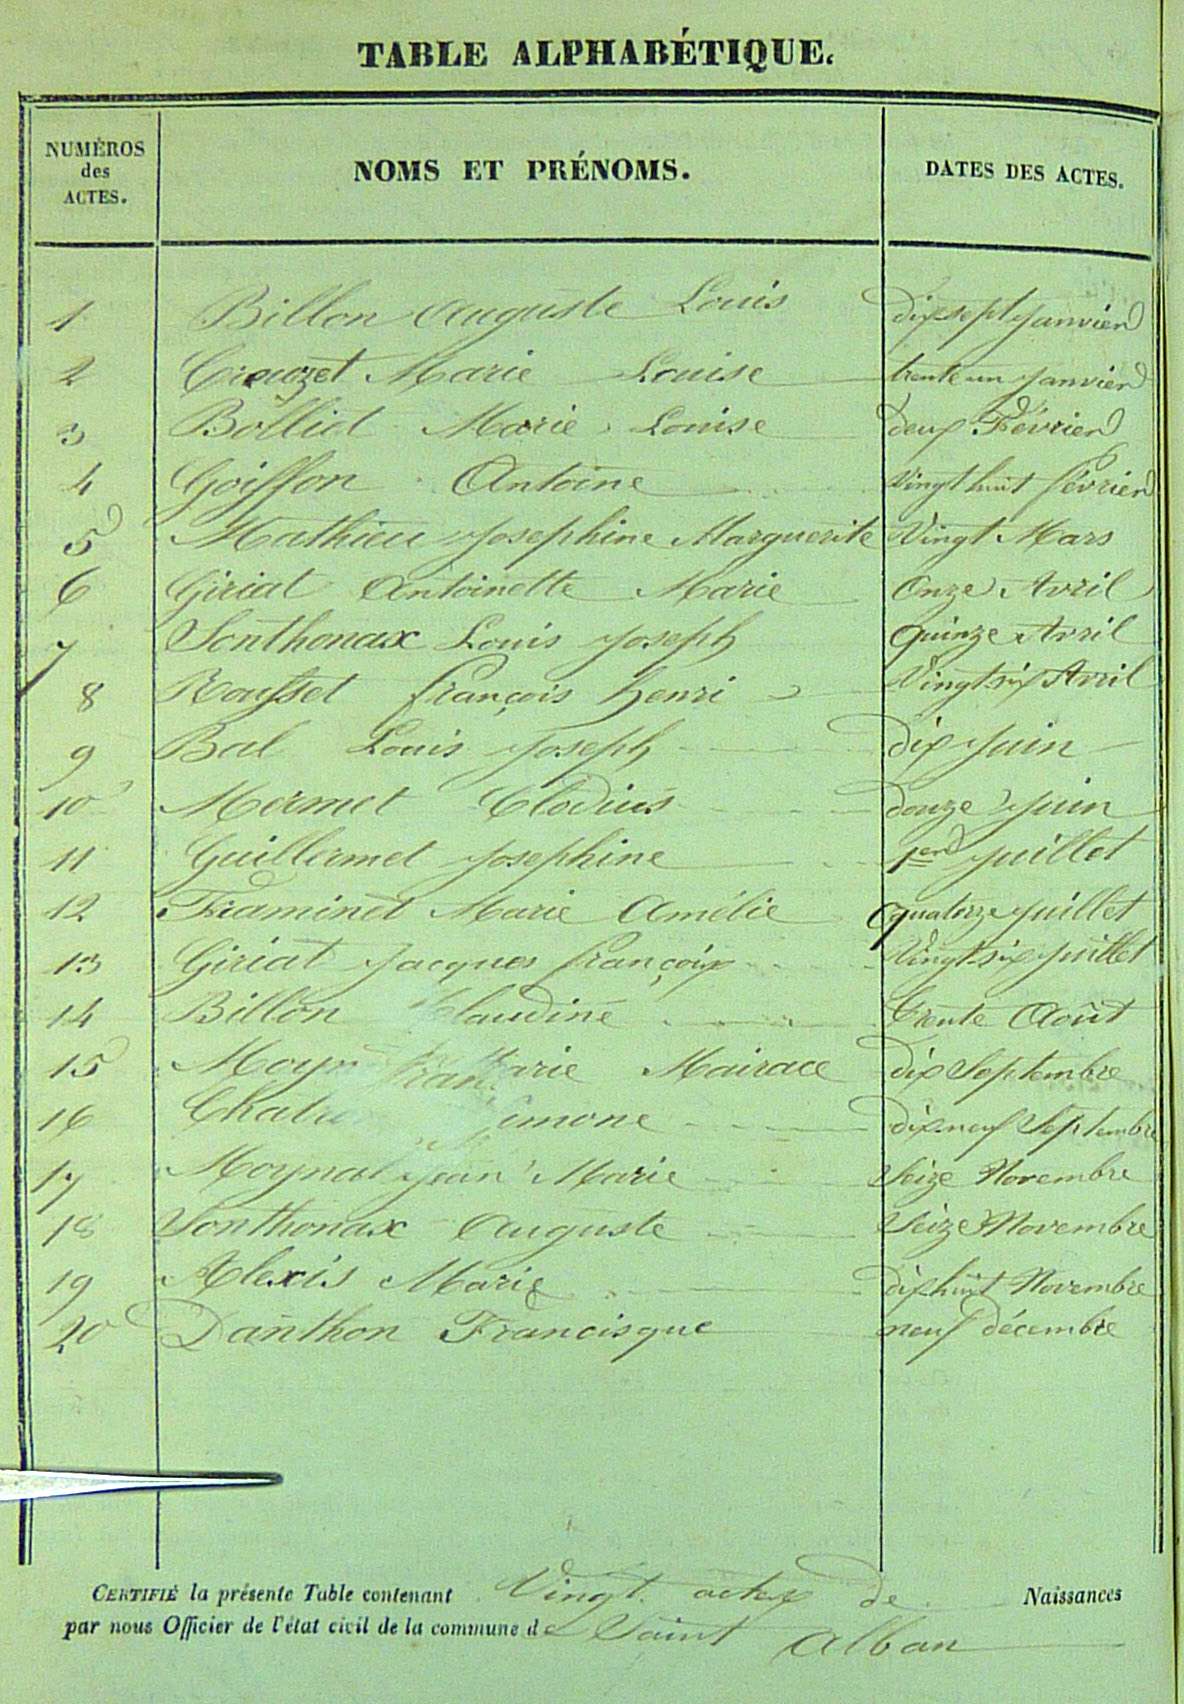 TABLE ALPHABÉTIQUE.
NUMÉROS des ACTES. NOMS ET PRÉNOMS. DATES DES ACTES.
1 Billon Auguste Louis dix sept Janvier
2 Creuzet Marie Louise trente un Janvier
3 Bolliet Marie Louise deux Février
4 Goiffon Antoine Vingt huit février
5 Mathieu Josephine Marguerite Vingt Mars
6 Giriat Antoinette Marie Onze Avril
7 Sonthonax Louis Joseph Quinze Avril
8 Rousset françois henri Vingt six Avril
9 Bal Louis Joseph dix Juin
10 Mermet Clodius douze Juin
11 Guillermet Josephine 1er Juillet
12 Framinet Marie Amélie quatorze Juillet
13 Giriat Jacques françois Vingt six Juillet
14 Billon Claudine Trente Août
15 Marie Mairace dix Septembre
16 dix neuf Septembre
17 Moynat Jean Marie Seize Novembre
18 Sonthonax Auguste Seize Novembre
19 Alexis Marie dix huit Novembre
20 Danthon Francisque neuf décembre
CERTIFIÉ la présente Table contenant Vingt actes de Naissances
par nous Officier de l'état civil de la commune de Saint Alban